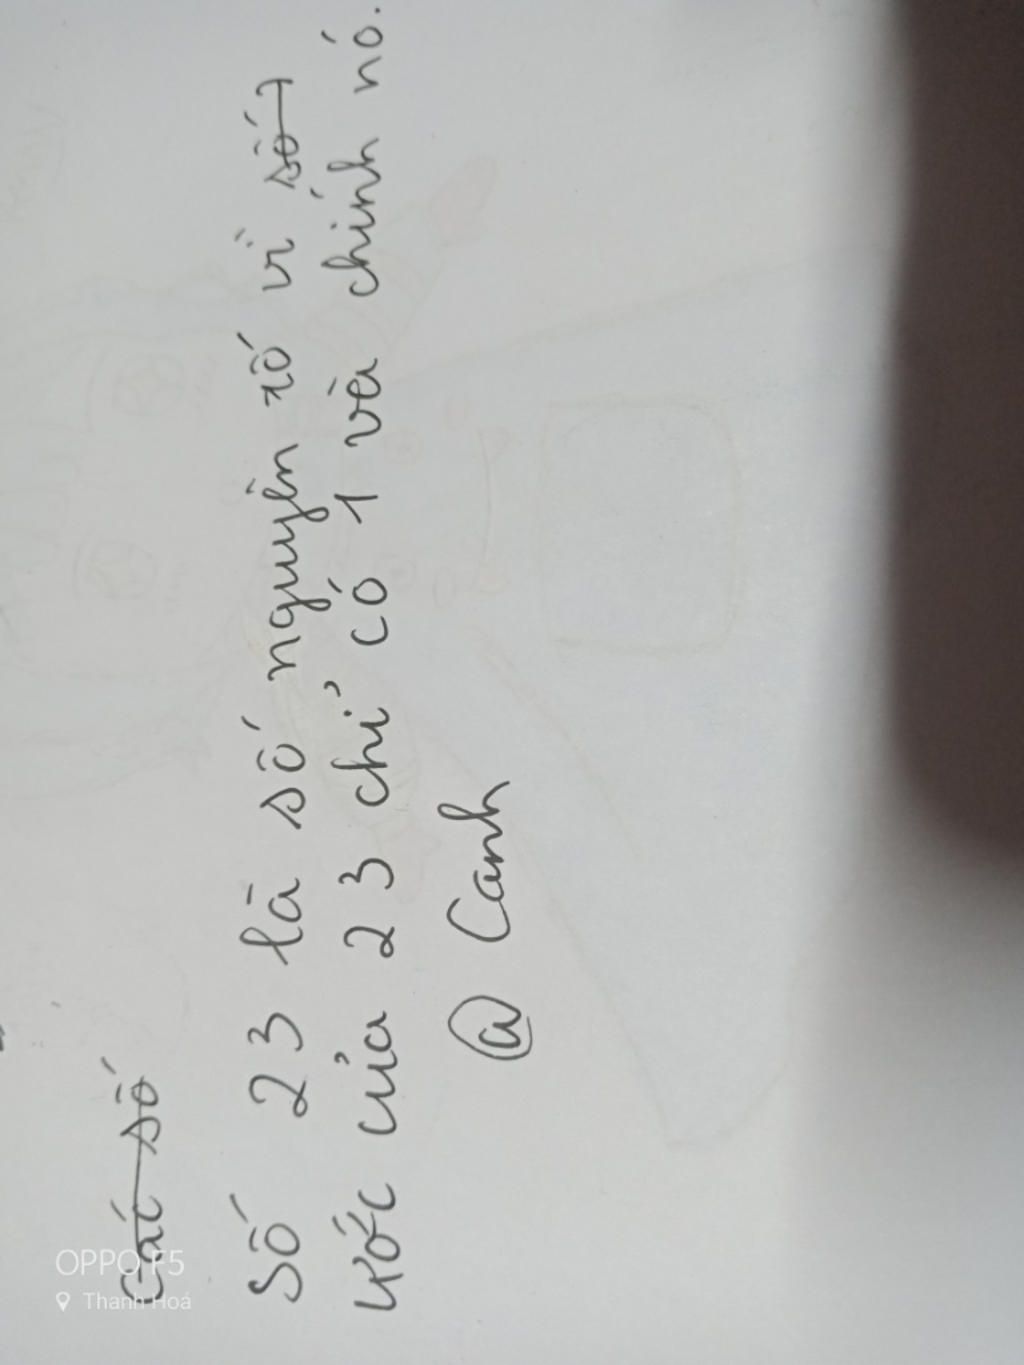 Các số
Số 23 là số nguyên tố vì số
ước của 23 chỉ có 1 và chính nó.
@ Canh
OPPO F5
Thanh Hoá